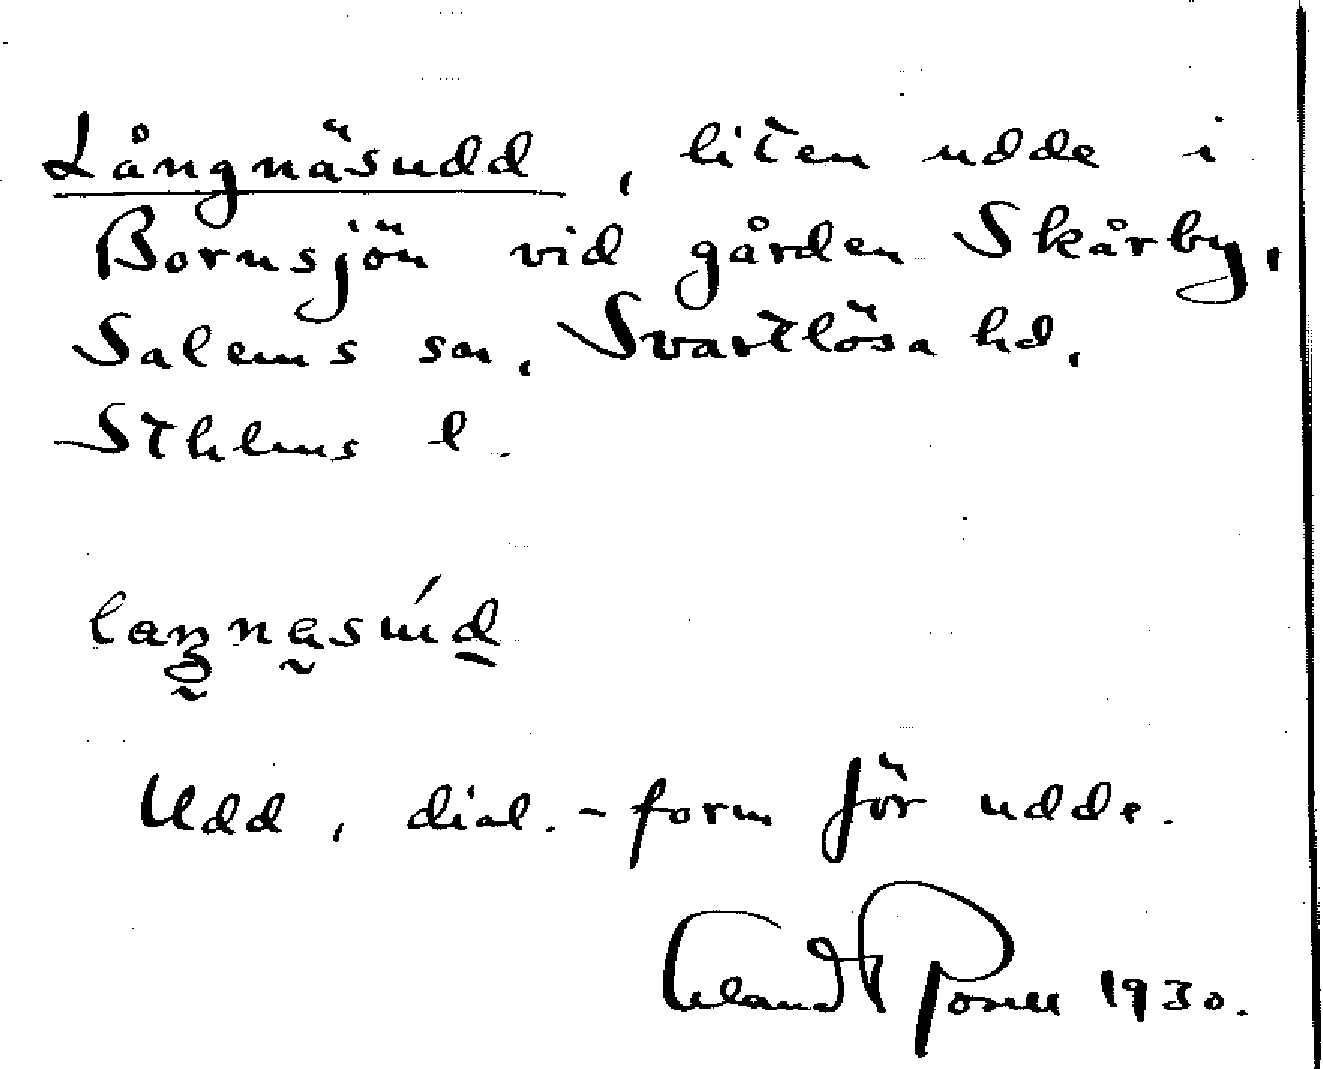 Långnäsudd, liten udde i
Bornsjön vid gården Skårby,
Salems sn, Svartlösa hd,
Sthlms l.
Udd, dial.-form för udde.
1930.